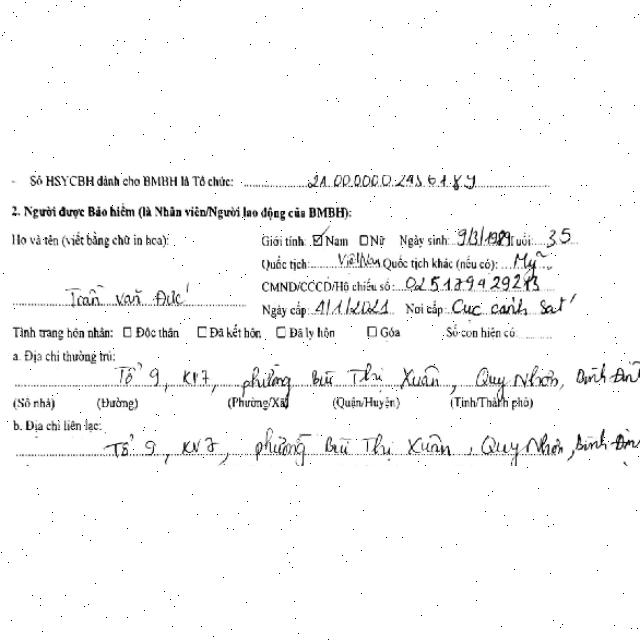 - Số HSYCBH dành cho BMBH là Tổ chức:
2. Người được Bảo hiểm (là Nhân viên/Người lao động của BMBH):
Họ và tên (viết bằng chữ in hoa): Giới tính: ☑ Nam ☐ Nữ Ngày sinh: 9/3/1989 Tuổi: 35
Quốc tịch: Việt Nam Quốc tịch khác (nếu có): Mỹ
CMND/CCCD/Hộ chiếu số:
Trần Văn Đức
Ngày cấp: 1/1/2021 Nơi cấp: Cục cảnh sát
Tình trạng hôn nhân: ☐ Độc thân ☐ Đã kết hôn ☐ Đã ly hôn ☐ Góa Số con hiện có:
a. Địa chỉ thường trú:
Tổ 9, KV7, phường Bùi Thị Xuân, Quy Nhơn, Bình Định
(Số nhà) (Đường) (Phường/Xã) (Quận/Huyện) (Tỉnh/Thành phố)
b. Địa chỉ liên lạc:
Tổ 9, KV7, phường Bùi Thị Xuân, Quy Nhơn, Bình Định